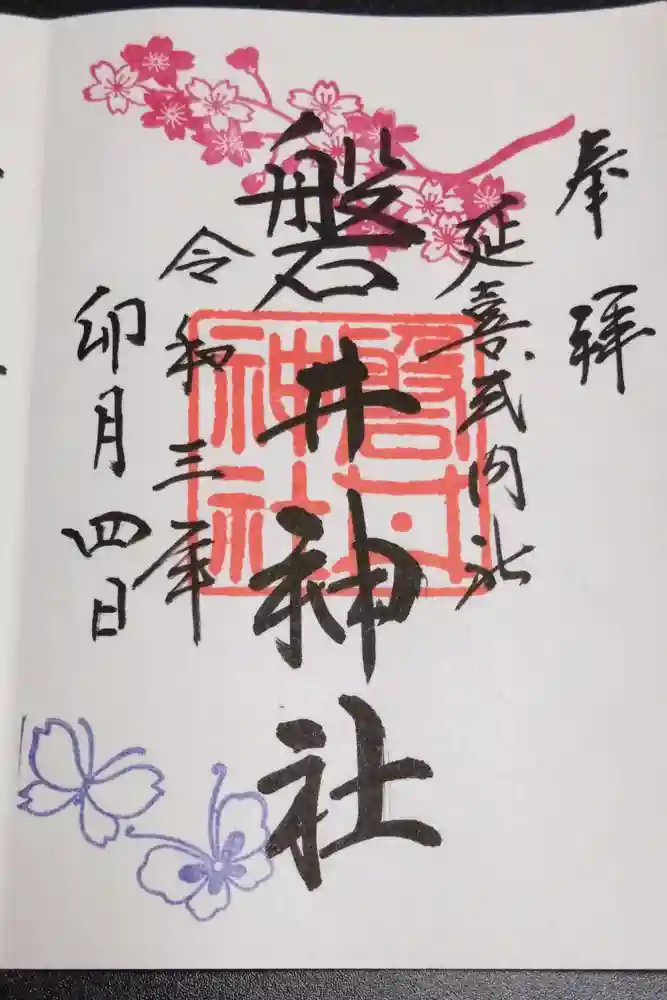 奉拝
延喜式内社
磐井神社
磐井神社
令和三年
卯月四日